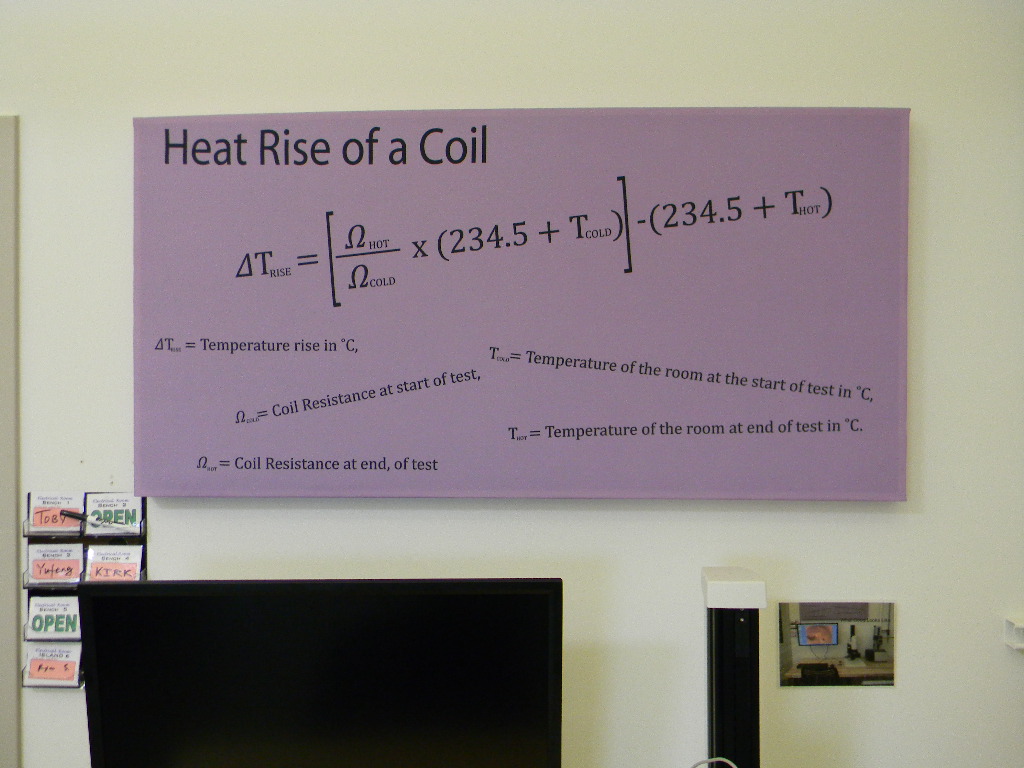 Heat Rise of a Coil
ΔT RISE = [Ω HOT / Ω COLD x (234.5 + T COLD)] -(234.5 + T HOT)
ΔT RISE = Temperature rise in °C,
T COLD = Temperature of the room at the start of test in °C,
Ω COLD = Coil Resistance at start of test,
T HOT = Temperature of the room at end of test in °C.
Ω HOT = Coil Resistance at end, of test
BENCH 1
TOBY
BENCH 2
OPEN
BENCH 3
Yufeng
BENCH 4
KIRK
BENCH 5
OPEN
ISLAND 6